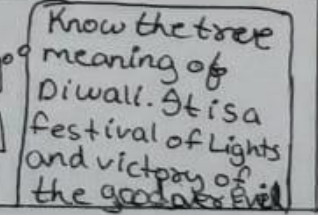 Know the tree
meaning of
Diwali. It is a
festival of Lights
and victory of
the good over Evil